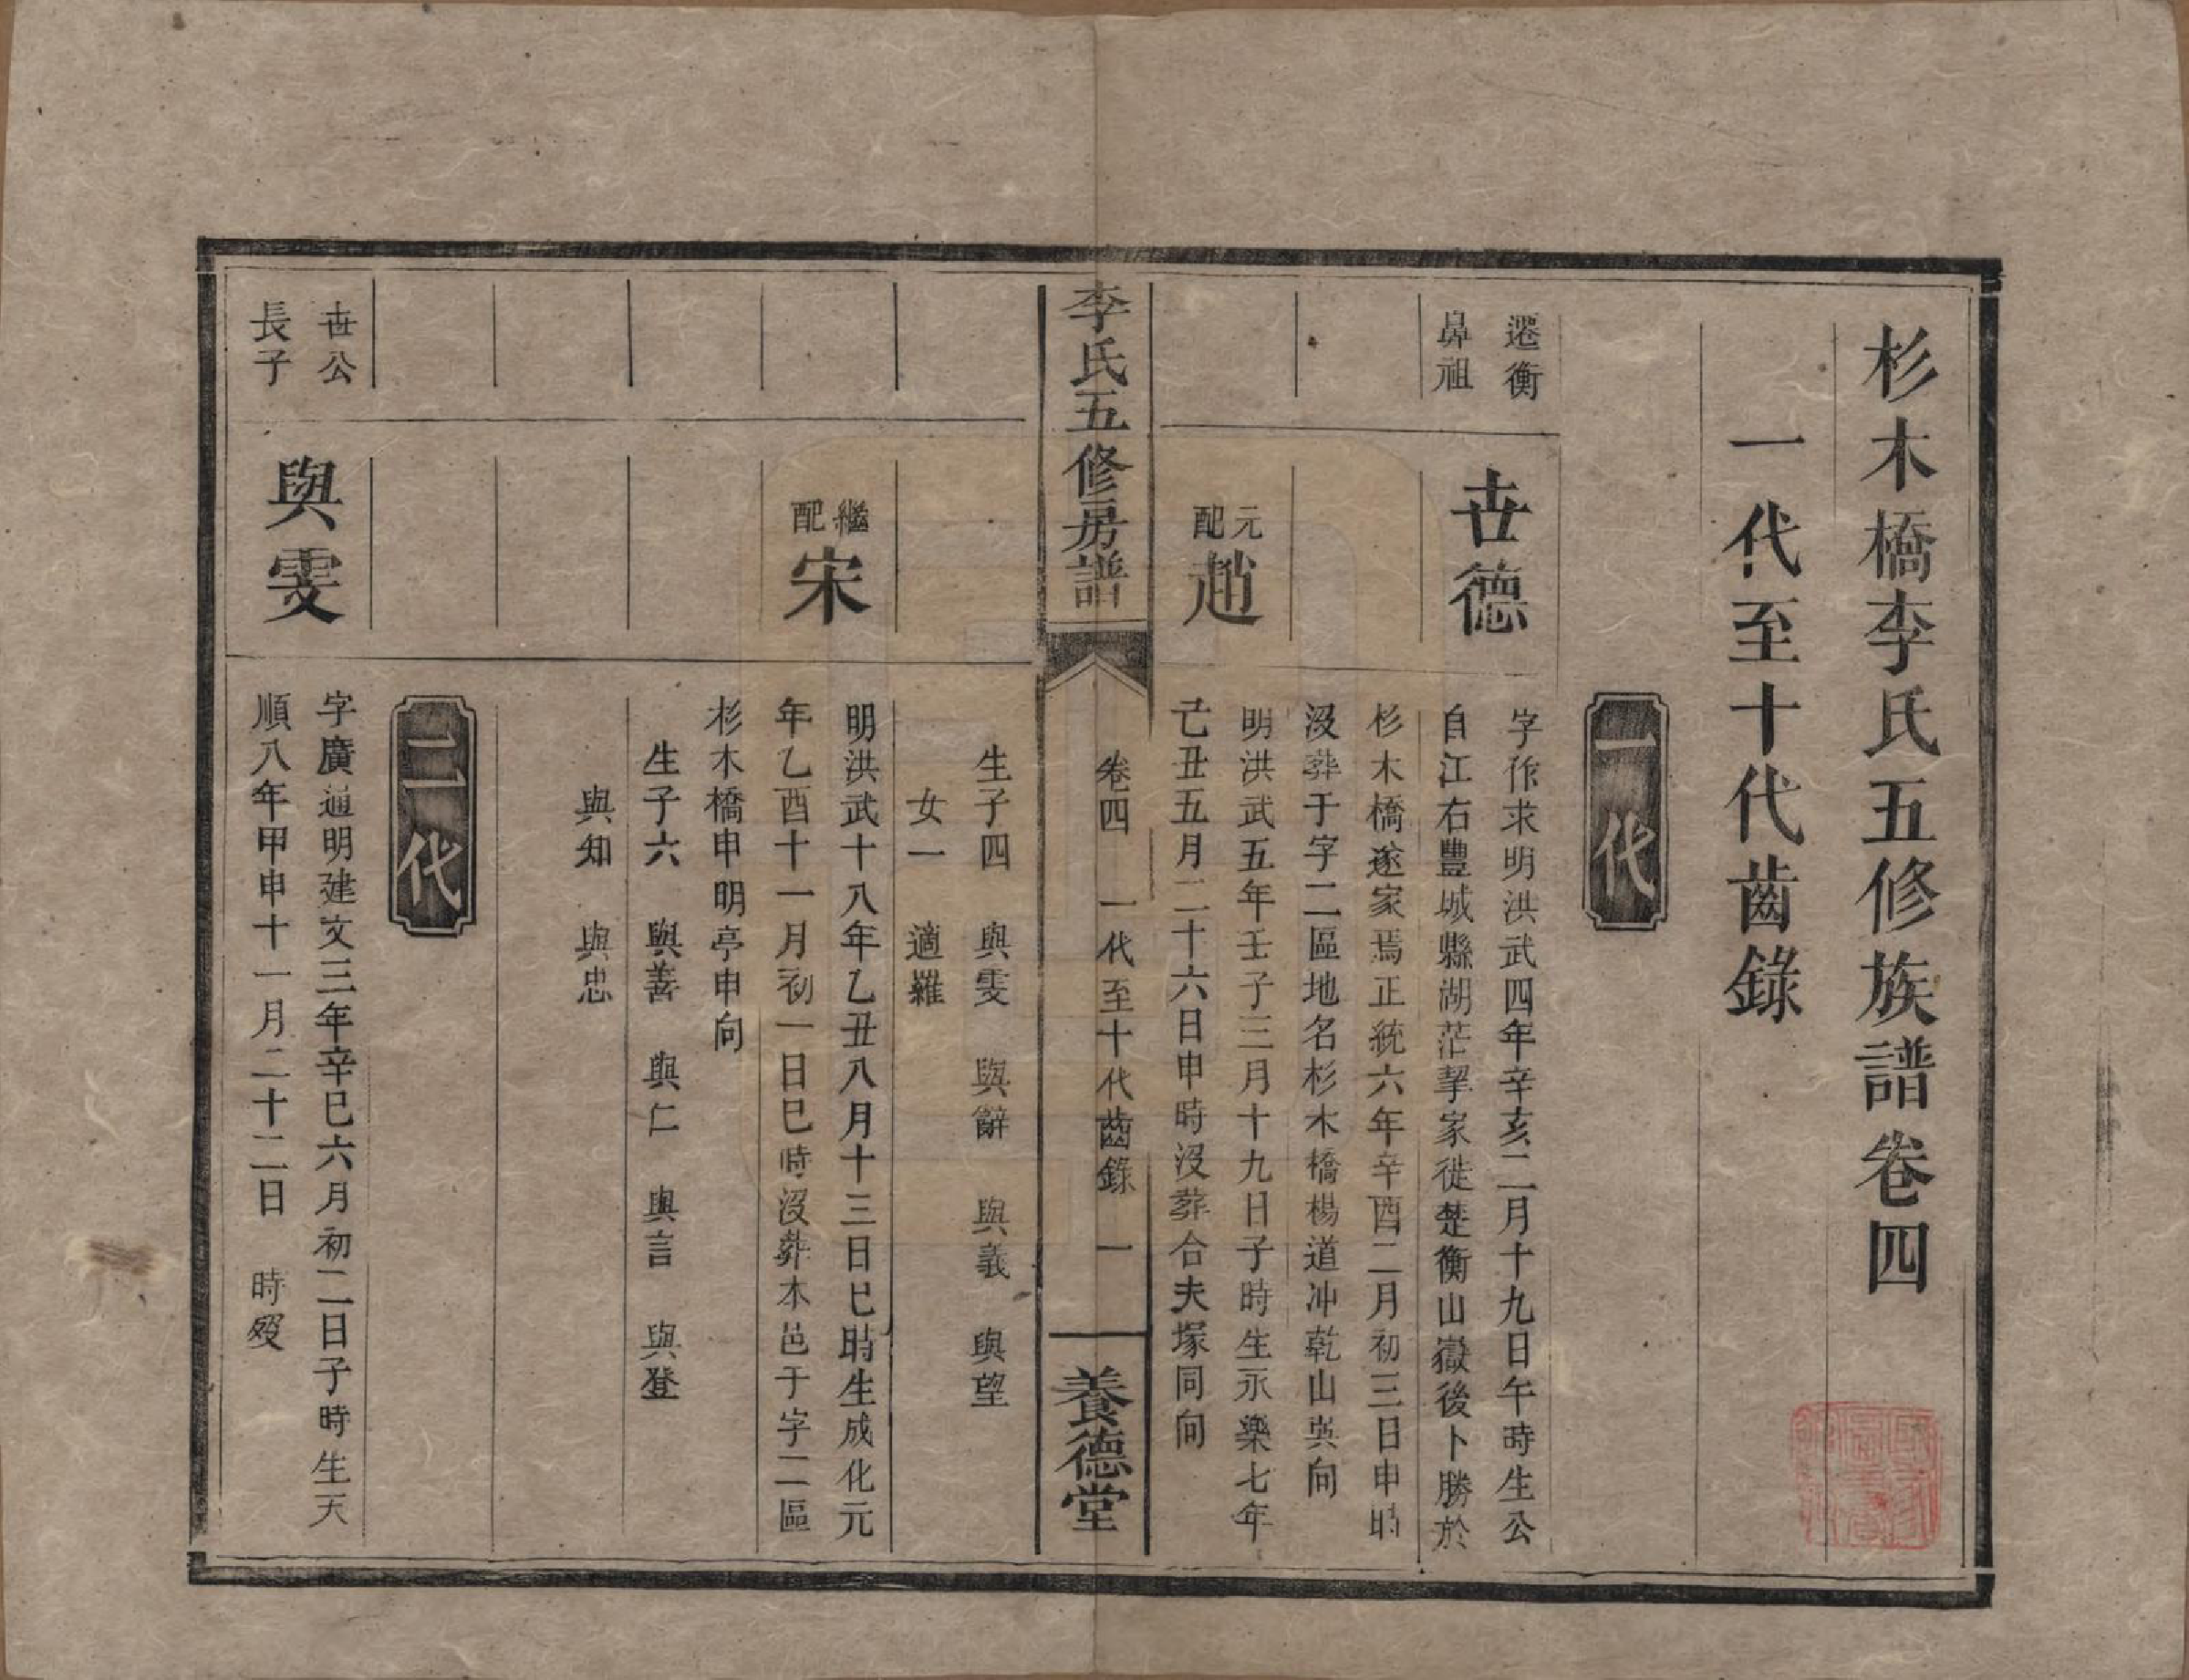 杉木橋李氏五修族譜卷四
一代至十代齒錄
一代
遷衡
鼻祖
世德
字作求明洪武四年辛亥二月十九日午時生公
自江右豐城縣湖茫挈家徙楚衡山嶽後卜勝於
杉木橋遂家焉正統六年辛酉二月初三日申時
沒葬于字二區地名杉木橋楊道冲乾山巽向
元配
趙
明洪武五年壬子三月十九日子時生永樂七年
己丑五月二十六日申時沒葬合夫塚同向
李氏五修房譜
卷四 一代至十代齒錄 一
養德堂
生子四 與雯 與辭 與義 與望
女一 適羅
繼配
宋
明洪武十八年乙丑八月十三日巳時生成化元
年乙酉十一月初一日巳時沒葬本邑于字二區
杉木橋申明亭申向
生子六 與善 與仁 與言 與登
與知 與忠
二代
世公
長子
與雯
字廣通明建文三年辛巳六月初二日子時生天
順八年甲申十一月二十二日 時歿